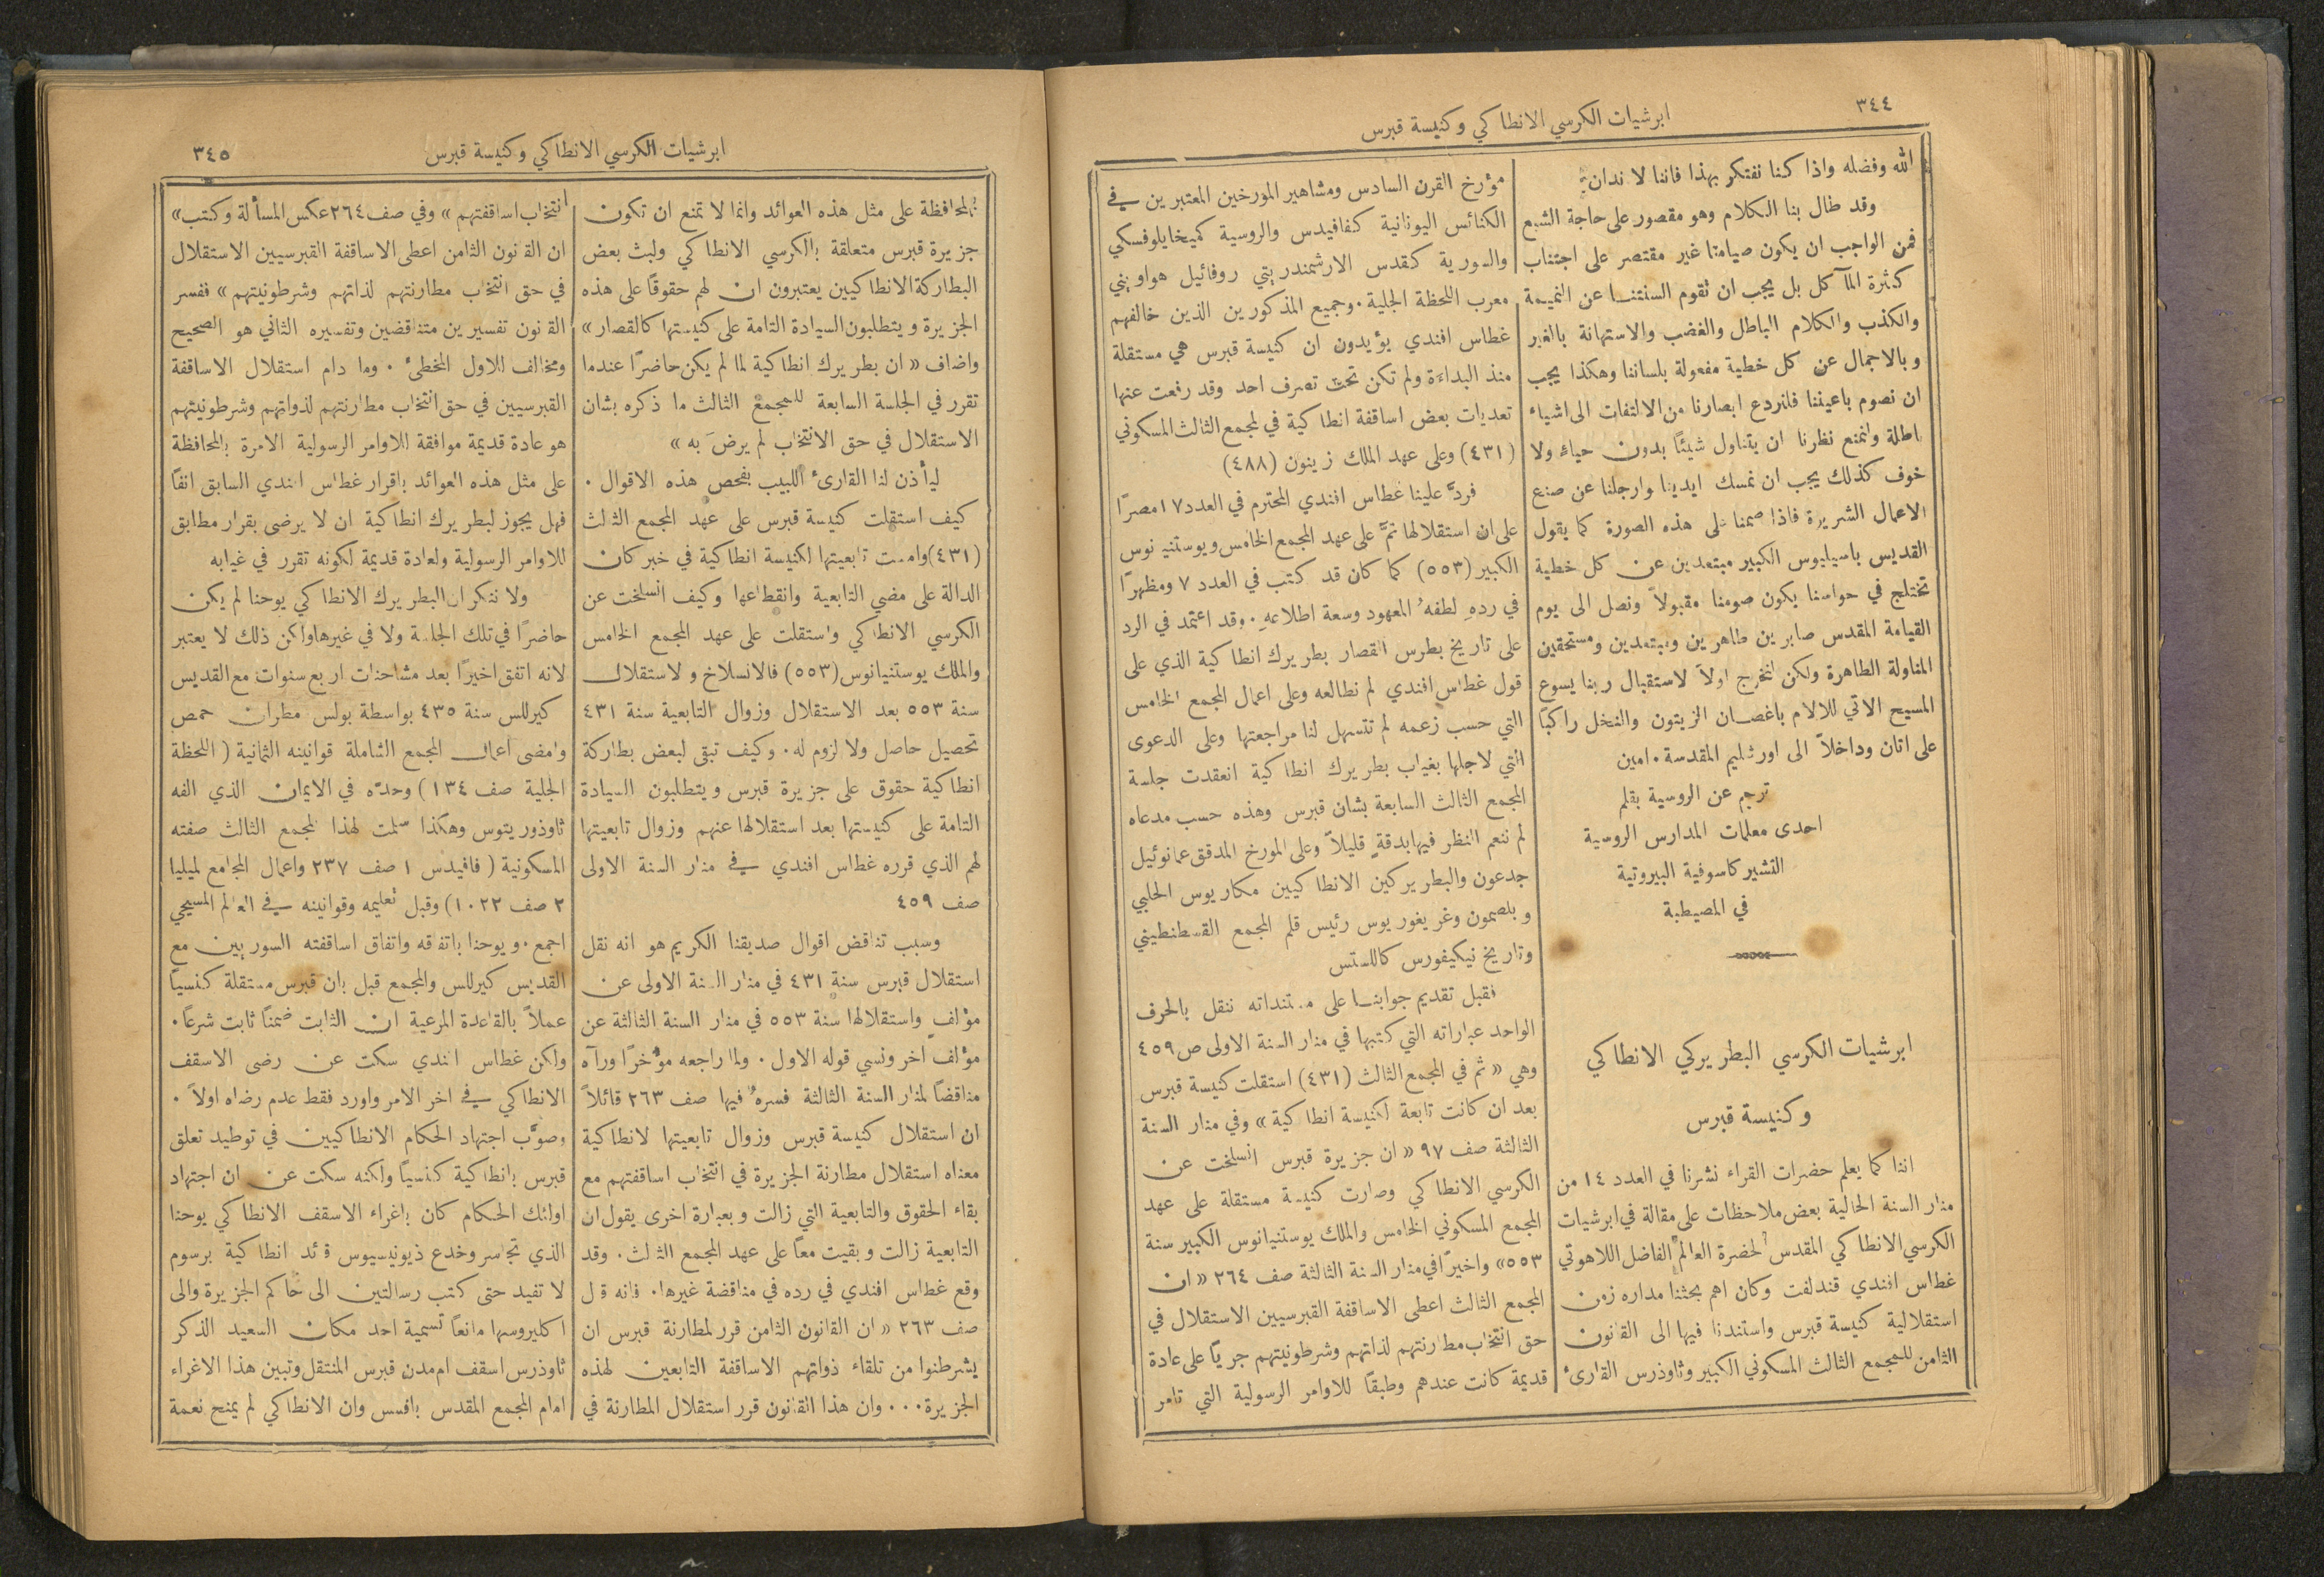 ٣٤٤
ابرشيات الكرسي الانطاكي وكنيسة قبرس
الله وفضله واذا كنا نفتكر بهذا فاننا لا ندان
وقد طال بنا الكلام وهو مقصور على حاجة الشبع
فمن الواجب ان يكون صيامنا غير مقتصر على اجتناب
كثرة المآكل بل يجب ان تقوم السنتنا عن النميمة
والكذب والكلام الباطل والغضب والاستهانة بالغير
وبالاجمال عن كل خطية مفعولة بلساننا وهكذا يجب
ان نصوم باعيننا فلنردع ابصارنا من الالتفات الى اشياء
باطلة ولنمنع نظرنا ان يتناول شيئًا بدون حياء ولا
خوف كذلك يجب ان نمسك ايدينا وارجلنا عن صنع
الاعمال الشريرة فاذا صمنا على هذه الصورة كما يقول
القديس باسيليوس الكبير مبتعدين عن كل خطية
تختلج في حواسنا يكون صومنا مقبولاً ونصل الى يوم
القيامة المقدس صابرين طاهرين ومبتعدين ومستحقين
المناولة الطاهرة ولكن لنخرج اولاً لاستقبال ربنا يسوع
المسيح الاتي للالام باغصان الزيتون والنخل راكبًا
على اتان وداخلاً الى اورشليم المقدسة . امين
ترجم عن الروسية بقلم
احدى معلمات المدارس الروسية
التشيركاسوفية البيروتية
في المصيطبة
ابرشيات الكرسي البطريركي الانطاكي
وكنيسة قبرس
اننا كما يعلم حضرات القراء نشرنا في العدد ١٤ من
منار السنة الحالية بعض ملاحظات على مقالة في ابرشيات
الكرسي الانطاكي المقدس لحضرة العالم الفاضل اللاهوتي
غطاس افندي قندلفت وكان اهم بحثنا مداره زمن
استقلالية كنيسة قبرس واستندنا فيها الى القانون
الثامن للمجمع الثالث المسكوني الكبير وثاوذرس القارئ
مؤرخ القرن السادس ومشاهير المؤرخين المعتبرين في
الكنائس اليونانية كفافيدس والروسية كميخايلوفسكي
والسورية كقدس الارشمندريتي روفائيل هواويني
معرب اللحظة الجلية . وجميع المذكورين الذين خالفهم
غطاس افندي يؤيدون ان كنيسة قبرس هي مستقلة
منذ البداءة ولم تكن تحت تصرف احد وقد رفعت عنها
تعديات بعض اساقفة انطاكية في لمجمع الثالث المسكوني
(٤٣١) وعلى عهد الملك زينون (٤٨٨)
فردَّ علينا غطاس افندي المحترم في العدد ١٧ مصرًا
على ان استقلالها تمَّ على عهد المجمع الخامس ويوستنيانوس
الكبير (٥٥٣) كما كان قد كتب في العدد ٧ ومظهرًا
في ردهِ لطفهُ المعهود وسعة اطلاعهِ . وقد اعتمد في الرد
على تاريخ بطرس القصار بطريرك انطاكية الذي على
قول غطاس افندي لم نطالعه وعلى اعمال المجمع الخامس
التي حسب زعمه لم تتسهل لنا مراجعتها وعلى الدعوى
التي لاجلها بغياب بطريرك انطاكية انعقدت جلسة
المجمع الثالث السابعة بشان قبرس وهذه حسب مدعاه
لم ننعم النظر فيها بدقةٍ قليلاً وعلى المورخ المدقق عمانوئيل
جدعون والبطريركين الانطاكيين مكاريوس الحلبي
وبلصمون وغريغوريوس رئيس قلم المجمع القسطنطيني
وتاريخ نيكيفورس كاللستس
فقبل تقديم جوابنا على مستنداته ننقل بالحرف
الواحد عباراته التي كتبها في منار السنة الاولى ص ٤٥٩
وهي « ثم في المجمع الثالث (٤٣١) استقلت كنيسة قبرس
بعد ان كانت تابعة لكنيسة انطاكية » وفي منار السنة
الثالثة صف ٩٧ « ان جزيرة قبرس انسلخت عن
الكرسي الانطاكي وصارت كنيسة مستقلة على عهد
المجمع المسكوني الخامس والملك يوستنيانوس الكبير سنة
٥٥٣» واخيرًا في منار السنة الثالثة صف ٢٦٤ « ان
المجمع الثالث اعطى الاساقفة القبرسيين الاستقلال في
حق انتخاب مطارنتهم لذاتهم وشرطونيتهم جريًا على عادة
قديمة كانت عندهم وطبقًا للاوامر الرسولية التي تامر
ابرشيات الكرسي الانطاكي وكنيسة قبرس
٣٤٥
بالمحافظة على مثل هذه العوائد وانما لا تمنع ان تكون
جزيرة قبرس متعلقة بالكرسي الانطاكي ولبث بعض
البطاركة الانطاكيين يعتبرون ان لهم حقوقًا على هذه
الجزيرة ويتطلبون السيادة التامة على كنيستها كالقصار »
واضاف « ان بطريرك انطاكية لما لم يكن حاضرًا عندما
تقرر في الجلسة السابعة للمجمع الثالث ما ذكره بشان
الاستقلال في حق الانتخاب لم يرضَ به »
ليأذن لنا القارئ اللبيب بفحص هذه الاقوال .
كيف استقلت كنيسة قبرس على عهد المجمع الثالث
(٤٣١) وامست تابعيتها لكنيسة انطاكية في خبر كان
الدالة على مضي التابعية وانقطاعها وكيف انسلخت عن
الكرسي الانطاكي واستقلت على عهد المجمع الخامس
والملك يوستنيانوس (٥٥٣) فالانسلاخ ولاستقلال
سنة ٥٥٣ بعد الاستقلال وزوال التابعية سنة ٤٣١
تحصيل حاصل ولا لزوم له . وكيف تبقى لبعض بطاركة
انطاكية حقوق على جزيرة قبرس ويتطلبون السيادة
التامة على كنيستها بعد استقلالها عنهم وزوال تابعيتها
لهم الذي قرره غطاس افندي في منار السنة الاولى
صف ٤٥٩
وسبب تناقض اقوال صديقنا الكريم هو انه نقل
استقلال قبرس سنة ٤٣١ في منار السنة الاولى عن
مؤلفٍ واستقلالها سنة ٥٥٣ في منار السنة الثالثة عن
مؤلف اخر ونسي قوله الاول . ولما راجعه مؤخرًا ورآه
مناقضًا لمنار السنة الثالثة فسرهُ فيها صف ٢٦٣ قائلاً
ان استقلال كنيسة قبرس وزوال تابعيتها لانطاكية
معناه استقلال مطارنة الجزيرة في انتخاب اساقفتهم مع
بقاء الحقوق والتابعية التي زالت وبعبارة اخرى يقول ان
التابعية زالت وبقيت معًا على عهد المجمع الثالث . وقد
وقع غطاس افندي في رده في مناقضة غيرها . فانه قال
صف ٢٦٣ « ان القانون الثامن قرر لمطارنة قبرس ان
يشرطنوا من تلقاء ذواتهم الاساقفة التابعين لهذه
الجزيرة . . . وان هذا القانون قرر استقلال المطارنة في
انتخاب اساقفتهم » وفي صف ٢٦٤ عكس المسألة وكتب «
ان القانون الثامن اعطى الاساقفة القبرسيين الاستقلال
في حق انتخاب مطارنتهم لذاتهم وشرطونيتهم » ففسر
القانون تفسيرين متناقضين وتفسيره الثاني هو الصحيح
ومخالف للاول المخطئ . وما دام استقلال الاساقفة
القبرسيين في حق انتخاب مطارنتهم لذواتهم وشرطونيتهم
هو عادة قديمة موافقة للاوامر الرسولية الامرة بالمحافظة
على مثل هذه العوائد باقرار غطاس افندي السابق انفًا
فهل يجوز لبطريرك انطاكية ان لا يرضى بقرار مطابق
للاوامر الرسولية ولعادة قديمة لكونه تقرر في غيابه
ولا ننكر ان البطريرك الانطاكي يوحنا لم يكن
حاضرًا في تلك الجلسة ولا في غيرها ولكن ذلك لا يعتبر
لانه اتفق اخيرًا بعد مشاحنات اربع سنوات مع القديس
كيرللس سنة ٤٣٥ بواسطة بولس مطران حمص
وامضى اعمال المجمع الشاملة قوانينه الثمانية ( اللحظة
الجلية صف ١٣٤ ) وحدّه في الايمان الذي الفه
ثاوذوريتوس وهكذا سلمت لهذا المجمع الثالث صفته
المسكونية ( فافيدس ١ صف ٢٣٧ واعمال المجامع لميليا
٢ صف ١٠٢٢ ) وقبل تعليمه وقوانينه في العالم المسيحي
اجمع . ويوحنا باتفاقه واتفاق اساقفته السوريين مع
القديس كيرللس والمجمع قبل بان قبرس مستقلة كنسيًا
عملاً بالقاعدة المرعية ان الثابت ضمنًا ثابت شرعًا .
ولكن غطاس افندي سكت عن رضى الاسقف
الانطاكي في اخر الامر واورد فقط عدم رضاه اولاً .
وصوَّب اجتهاد الحكام الانطاكيين في توطيد تعلق
قبرس بانطاكية كنسيًا ولكنه سكت عن ان اجتهاد
اولئك الحكام كان باغراء الاسقف الانطاكي يوحنا
الذي تجاسر وخدع ذيونيسيوس قائد انطاكية برسوم
لا تفيد حتى كتب رسالتين الى حاكم الجزيرة والى
اكليروسها مانعًا تسمية احد مكان السعيد الذكر
ثاوذرس اسقف ام مدن قبرس المنتقل وتبين هذا الاغراء
امام المجمع المقدس بافسس وان الانطاكي لم يمنح نعمة